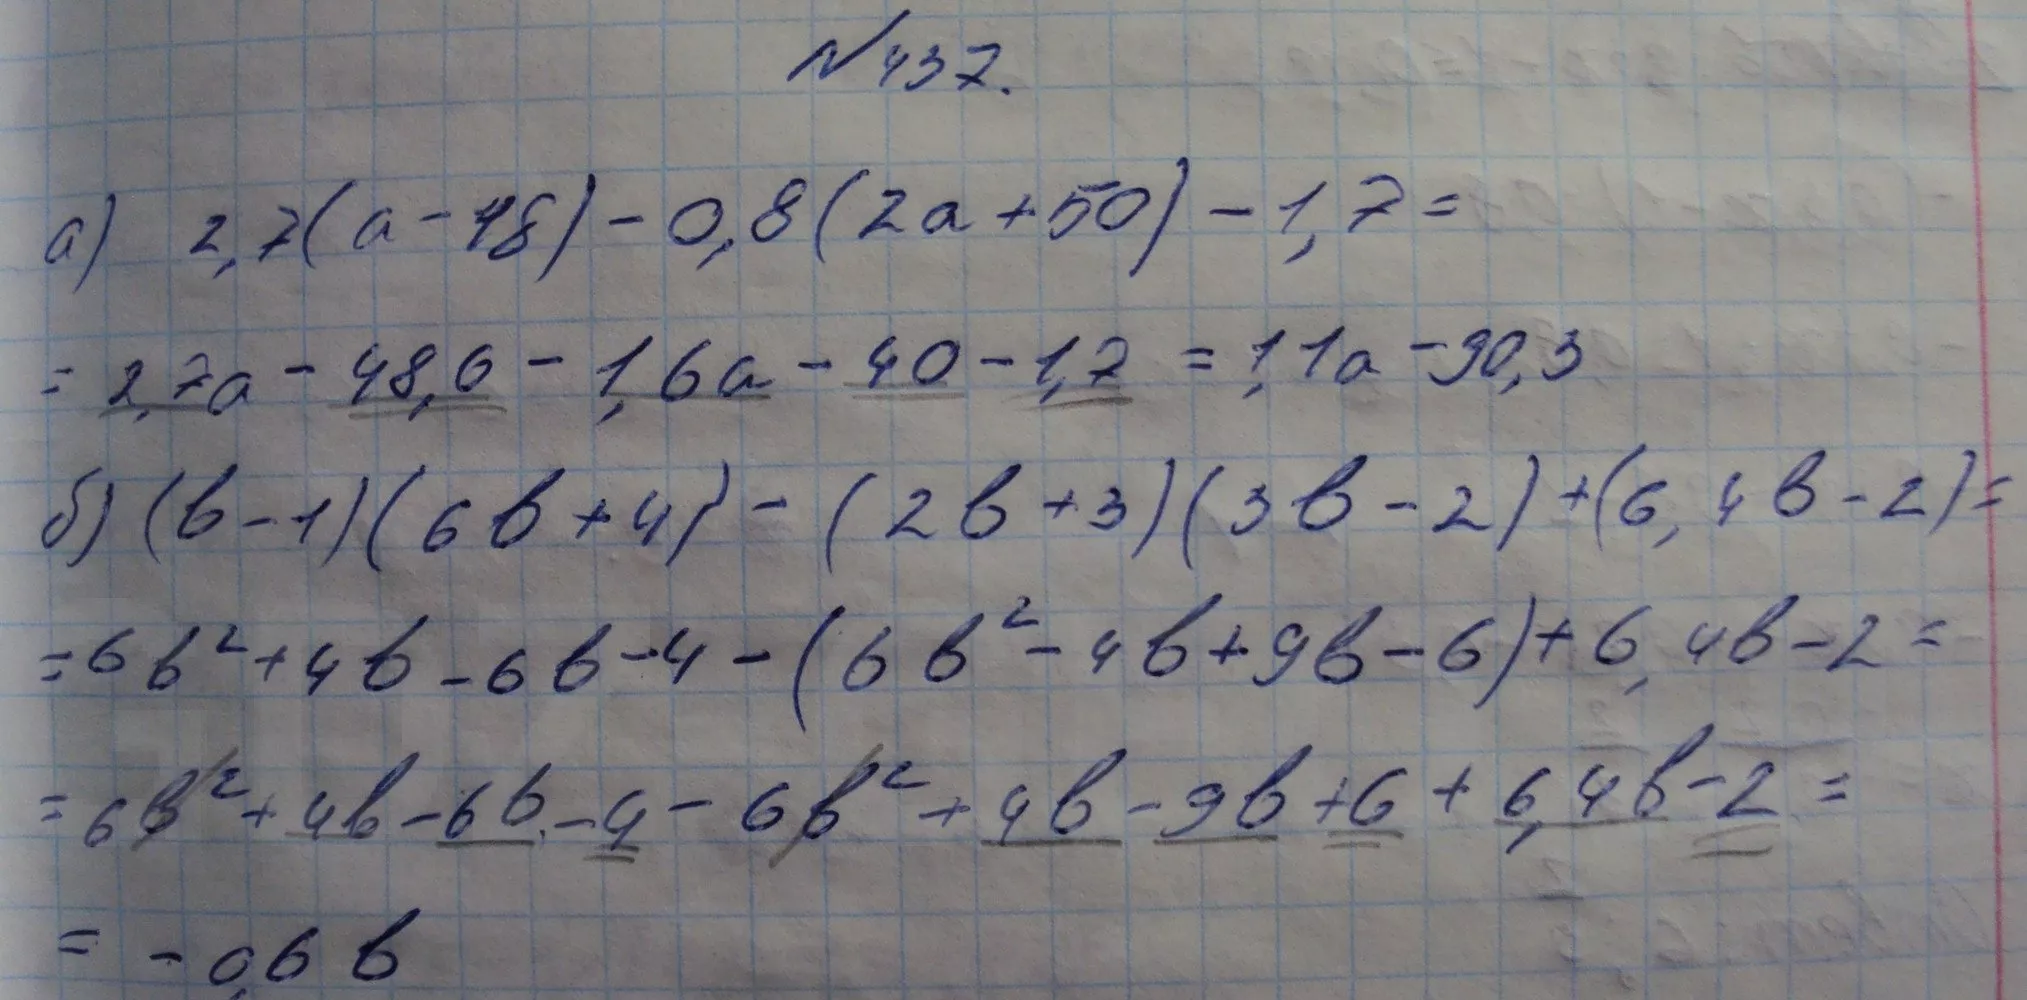 №437.
а) 2,7(a-18)-0,8(2a+50)-1,7=
=2,7a-48,6-1,6a-40-1,7=1,1a-90,3
б) (b-1)(6b+4)-(2b+3)(3b-2)+(6,4b-2)=
=6b²+4b-6b-4-(6b²-4b+9b-6)+6,4b-2=
=6b²+4b-6b-4-6b²+4b-9b+6+6,4b-2=
=-0,6b